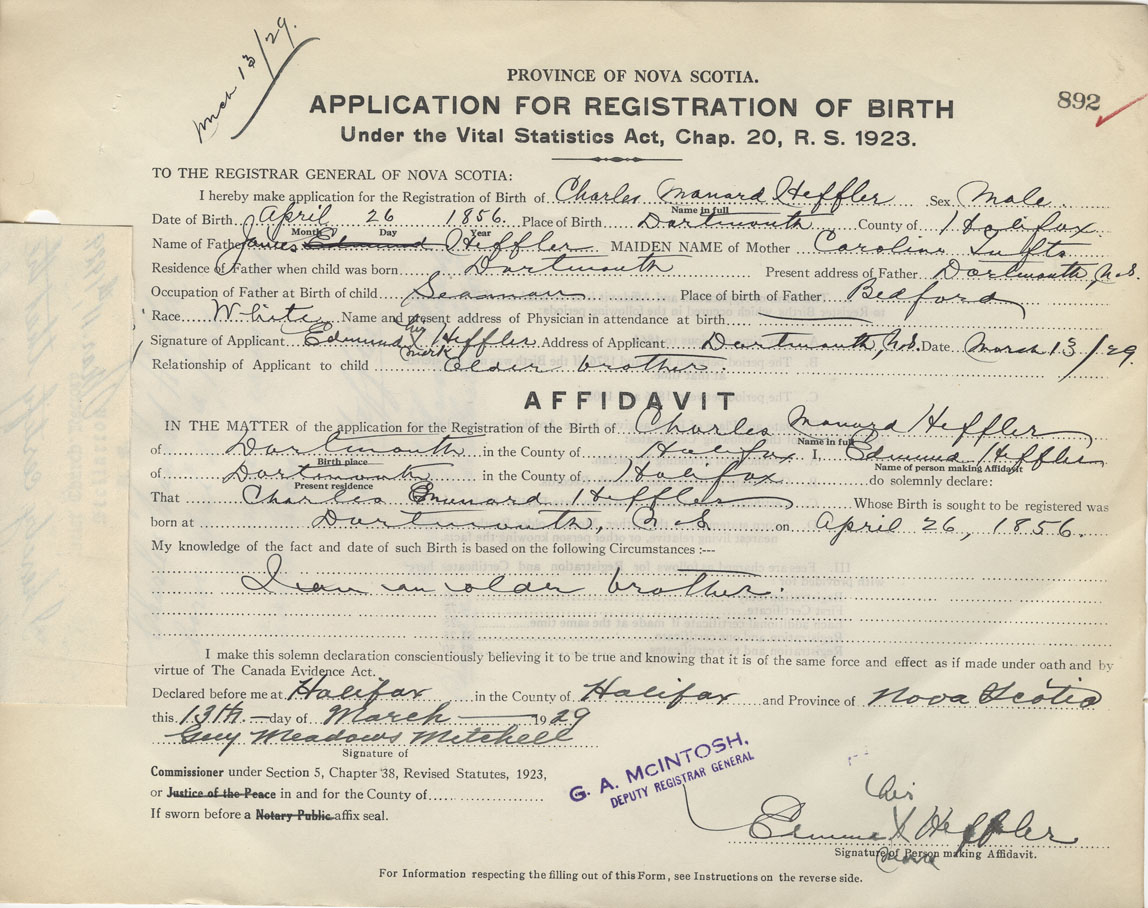 March 13/29.
PROVINCE OF NOVA SCOTIA.
APPLICATION FOR REGISTRATION OF BIRTH
892
Under the Vital Statistics Act, Chap. 20, R. S. 1923.
TO THE REGISTRAR GENERAL OF NOVA SCOTIA:
I hereby make application for the Registration of Birth of Charles Manard Heffler Sex Male.
Name in full
Date of Birth April 26 1856. Place of Birth Dartmouth County of Halifax
Month Day Year
Name of Father James Edmund Heffler MAIDEN NAME of Mother Caroline Tufts
Residence of Father when child was born Dartmouth Present address of Father Dartmouth, N.S.
Occupation of Father at Birth of child Seaman Place of birth of Father Bedford
Race White Name and present address of Physician in attendance at birth
Signature of Applicant Edmund his X mark Heffler Address of Applicant Dartmouth, N.S. Date March 13/29.
Relationship of Applicant to child older brother.
AFFIDAVIT
IN THE MATTER of the application for the Registration of the Birth of Charles Manard Heffler
Name in full
of Dartmouth in the County of Halifax I, Edmund Heffler
Birth place Name of person making Affidavit
of Dartmouth in the County of Halifax do solemnly declare:
Present residence
That Charles Manard Heffler Whose Birth is sought to be registered was
born at Dartmouth, N.S. on April 26, 1856.
My knowledge of the fact and date of such Birth is based on the following Circumstances :---
I am an older brother.
I make this solemn declaration conscientiously believing it to be true and knowing that it is of the same force and effect as if made under oath and by
virtue of The Canada Evidence Act.
Declared before me at Halifax in the County of Halifax and Province of Nova Scotia
this 13th day of March 1929
Guy Meadows Mitchell
Signature of
Commissioner under Section 5, Chapter 38, Revised Statutes, 1923,
or Justice of the Peace in and for the County of
If sworn before a Notary Public affix seal.
G. A. McINTOSH,
DEPUTY REGISTRAR GENERAL
his
Edmund X Heffler
mark
Signature of Person making Affidavit.
For Information respecting the filling out of this Form, see Instructions on the reverse side.